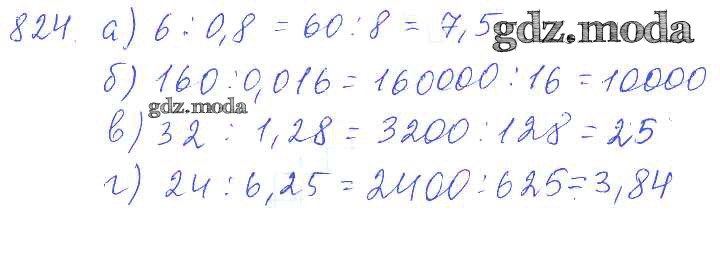 824. а) 6 : 0,8 = 60 : 8 = 7,5 gdz.moda
б) 160 : 0,016 = 160000 : 16 = 10000
gdz.moda
в) 32 : 1,28 = 3200 : 128 = 25
г) 24 : 6,25 = 2400 : 625 = 3,84